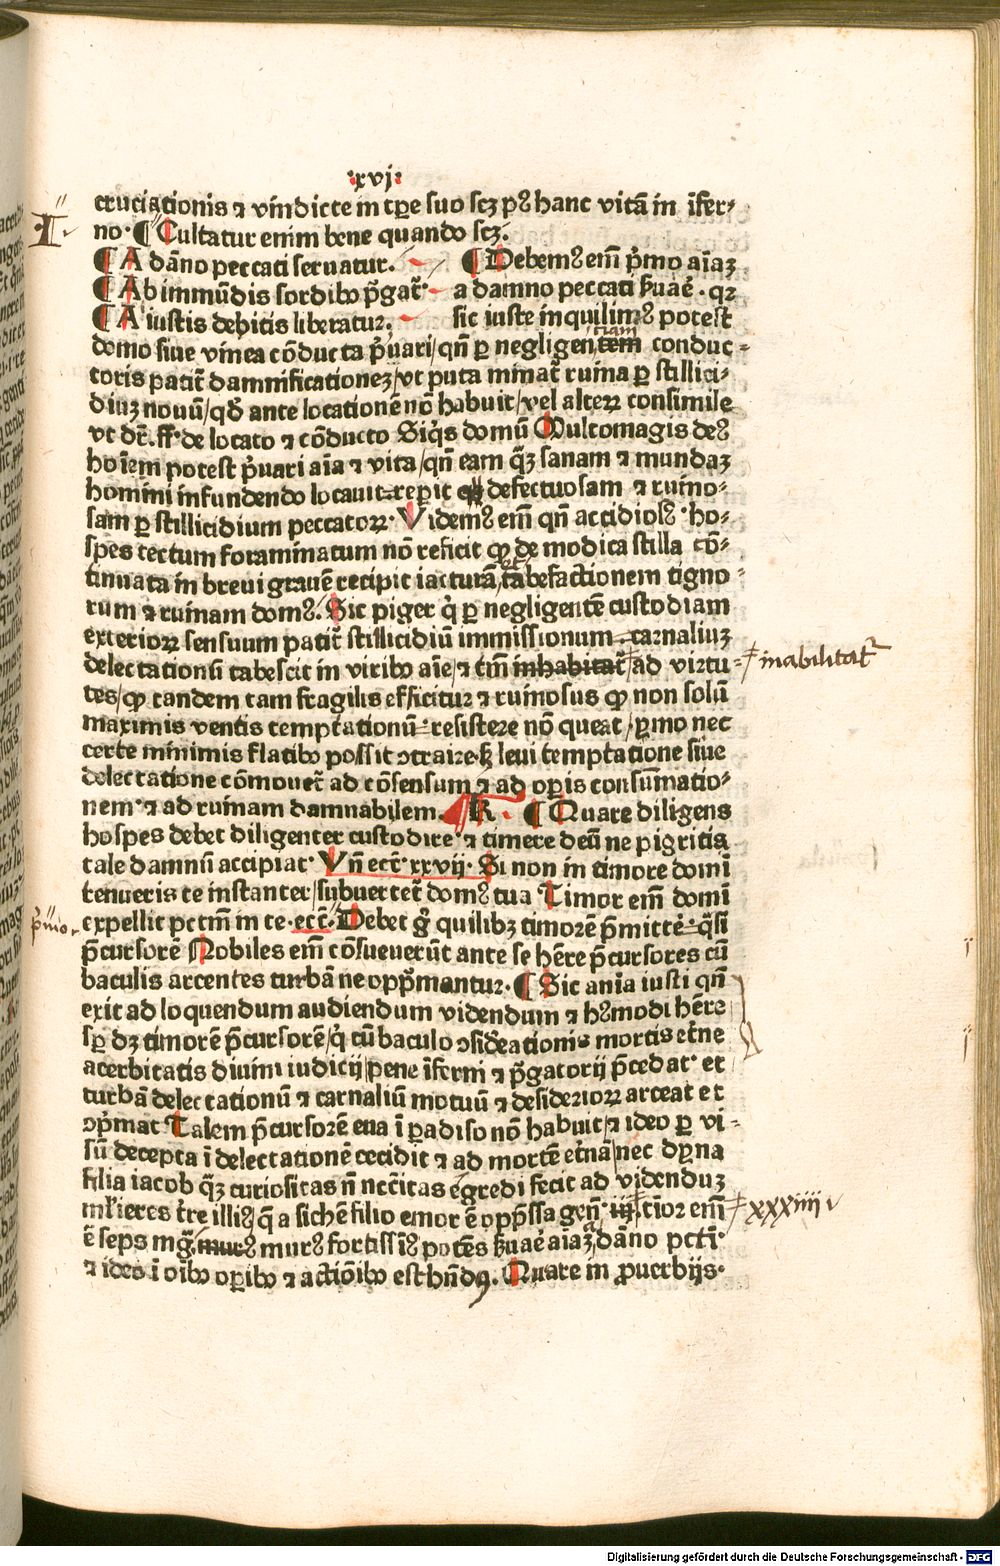 ·xvj·
cruciationis ⁊ vindicte in tp̄re suo scꝫ p⁹ hanc vitā in īfer⸗
no· ¶ Cultatur enim bene quando scꝫ.
¶ A dāno peccati seruatur. ¶ Debem⁹ em̄ p̄mo aīaꝫ
¶ Ab immūdis sordibꝰ p̄gat̄· a damno peccati ẜuare · qꝛ
¶ A iustis debitis liberatur. sic iuste inquilin⁹ potest
domo siue vinea cōducta p̄uari / qn̄ ꝑ negligentiam conduc⸗
toris patit̄ damnificationeꝫ / vt puta minat̄ ruina ꝑ stillici⸗
diuꝫ nouū / qđ ante locationē nō habuit / vel alterꝝ consimile
vt dr̄. ff· de locato ⁊ cōducto Siq̄s domū Multomagis de⁹
hoīem potest p̄uari aīa ⁊ vita / qn̄ eam q̄ꝫ sanam ⁊ mundaꝫ
homini infundendo locauit reperit defectuosam ⁊ ruino⸗
sam ꝑ stillicidium peccatorꝝ· Videm⁹ em̄ qn̄ accidios⁹ ho⸗
spes tectum foraminatum nō reficit ꝙ de modica stilla cō⸗
tinuata in breui grauē recipit iacturā, et tabefactionem tigno⸗
rum ⁊ ruinam dom⁹. Sic piger q̄ ꝑ negligentē custodiam
exteriorꝝ sensuum patit̄ stillicidiū immissionum carnaliuꝫ
delectationū tabescit in viribꝰ aīe, ⁊ tm̄ inhabitat̄ ad virtu⸗
inabilitat̄
tes / ꝙ tandem tam fragilis efficitur ⁊ ruinosus ꝙ non solū
maximis ventis temptationū resistere nō queat / ymo nec
certe minimis flatibꝰ possit ɔtraire ẜꝫ leui temptatione siue
delectatione cōmouet̄ ad cōsensum ⁊ ad oꝑis consum̄atio⸗
nem ⁊ ad ruinam damnabilem. R. ¶ Quare diligens
hospes debet diligenter custodire ⁊ timere deū ne pigritia
tale damnū accipiat· Vn̄ ecc̄· xxvij· Si non in timore domī
tenueris te instanter / subuertet̄ dom⁹ tua Timor em̄ domī
expellit pctm̄ in te· ecc̄· Debet g̊ quilibꝫ timorē p̄mittē q̄si
p̄cursorē Nobiles em̄ cōsueuerūt ante se hēre p̄cursores cū
baculis arcentes turbā ne opp̄mantur. ¶ Sic anīa iusti qn̄
exit ad loquendum audiendum videndum ⁊ h⁹modi hēre
sꝑ dꝫ timorē p̄cursorē / q̄ cū baculo ɔsiđeationis mortis et̄ne
acerbitatis diuini iudicij / pene īferni ⁊ p̄gatorij p̄cedat et
turbā delectationū ⁊ carnaliū motuū ⁊ desideriorꝝ arceat et
ɔp̄mat Talem p̄cursorē eua ī ꝑadiso nō habuit, ⁊ ideo ꝑ vi⸗
sū decepta ī delectationē cecidit ⁊ ad mortē et̄nā / nec dyna
filia iacob q̄ꝫ curiositas n̄ nec̄itas egredi fecit ad videnduꝫ
ml̄ieres t̄re illi⁹ / q̄ a sichē filio emor ē opp̄ssa gen̄· iij· tīor em̄
xxxiiii
ē seps mg̊. mur⁹ mur⁹ fortiss̄⁹ potēs ẜuare aīaꝫ a dāno pcti·
⁊ ideo ī oībꝰ oꝑibꝰ ⁊ actiōibꝰ est hn̄dꝰ. Quare in ꝓuerbijs·
Digitalisierung gefördert durch die Deutsche Forschungsgemeinschaft - DFG